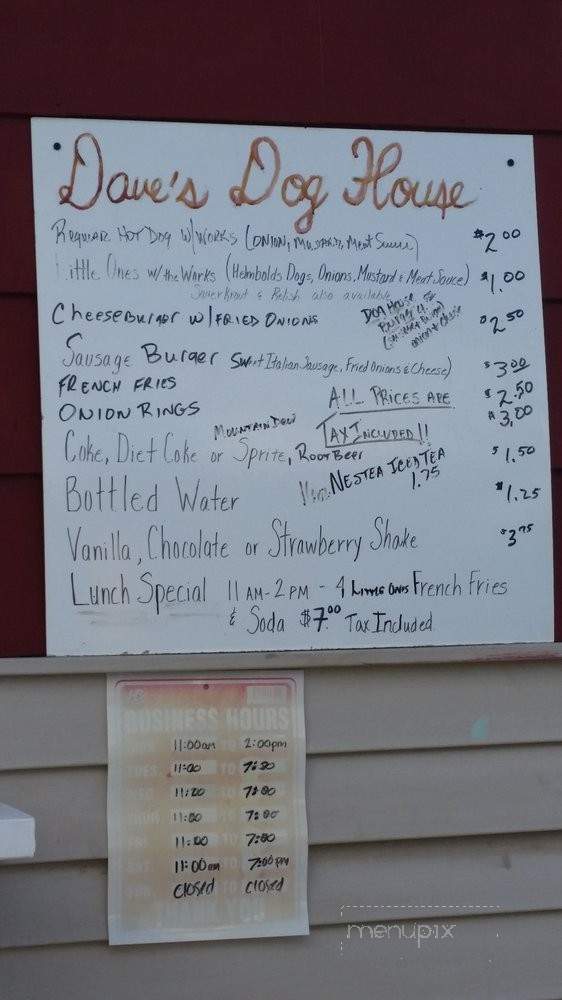 Dave's Dog House
Regular Hot Dog w/works (Onion, Mustard, Meat Sauce) $2.00
Little Ones w/the Works (Helmbolds Dogs, Onions, Mustard & Meat Sauce) $1.00
Sauerkraut & Relish also available
Cheeseburger w/Fried Onions $2.50
Dog House
Burger
onion & cheese
Sausage Burger Sweet Italian Sausage, Fried Onions & Cheese) $3.00
French Fries $2.50
Onion Rings $3.00
All Prices Are
Tax Included!!
Mountain Dew
Coke, Diet Coke or Sprite, Root Beer $1.50
Nestea Iced Tea
1.75
Bottled Water $1.25
Vanilla, Chocolate or Strawberry Shake $3.75
Lunch Special 11 AM-2 PM - 4 Little Ones French Fries
& Soda $7.00 Tax Included
BUSINESS HOURS
11:00am TO 2:00pm
TUES 11:00 TO 7:00
11:00 TO 7:00
THUR 11:00 TO 7:00
FRI 11:00 TO 7:00
SAT 11:00am TO 7:00pm
closed closed
THANK YOU
menupix